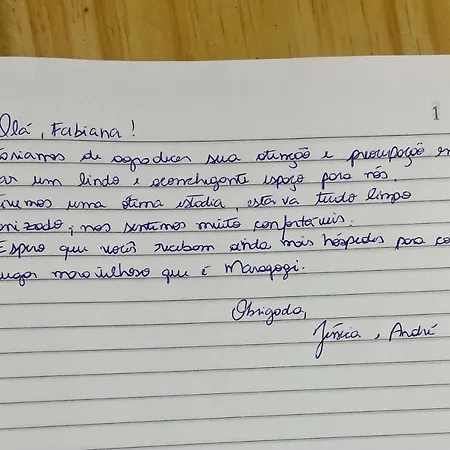 1
Olá, Fabiana!
osiamos de agradecer sua atenção e preocupação em
ar um lindo e aconchegante espaço para nós.
ivemos uma ótima estadia, estava tudo limpo
nizado, nos sentimos muito confortáveis.
Espero que vocês recebam ainda mais hóspedes para co
lugar maravilhoso que é Maragogi.
Obrigada,
Jéssica, André